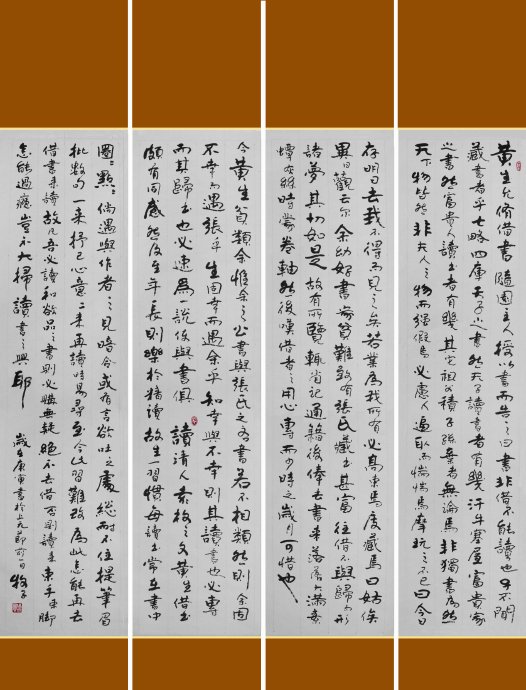 黄生允脩借書隨園主人授以書而告之曰書非借不能讀也子不聞
藏書者乎七略四庫天子之書然天子讀書者有幾汗牛塞屋富貴家
之書然富貴人讀書者有幾其它祖父積子孫棄者無論焉非獨書為然
天下物皆然非夫人之物而强假焉必慮人逼取而惴惴焉摩玩之不已曰今日
存明日去我不得而見之矣若業為我所有必高束焉庋藏焉曰姑俟
異日觀云尔余幼好書家貧難致有張氏藏書甚富往借不與歸而形
諸夢其切如是故有所覽輒省記通籍後俸去書來落落大滿素
蟫灰絲時蒙卷軸然後嘆借者之用心專而少時之歲月可惜也
今黄生貧類余惟余之公書與張氏之吝書若不相類然則余固
不幸而遇張乎生固幸而遇余乎知幸與不幸則其讀書也必專
而其歸書也必速為說俾與書俱 讀清人袁枚之文黄生借書
頗有同感然後至年長則樂於購讀故生一習慣每讀書常在書中
圈圈點點倘遇與作者之見暗合或有言欲吐之處總耐不住提筆眉
批數句一来抒己心意二来再讀時易尋至今此習難改為此怎能再去
借書来讀故凡吾必讀和欲品之書則必購無疑絕不去借否則讀来束手束脚
怎能過癮豈不大掃讀書之興耶 歲在庚寅書於上元節前一日 牧子